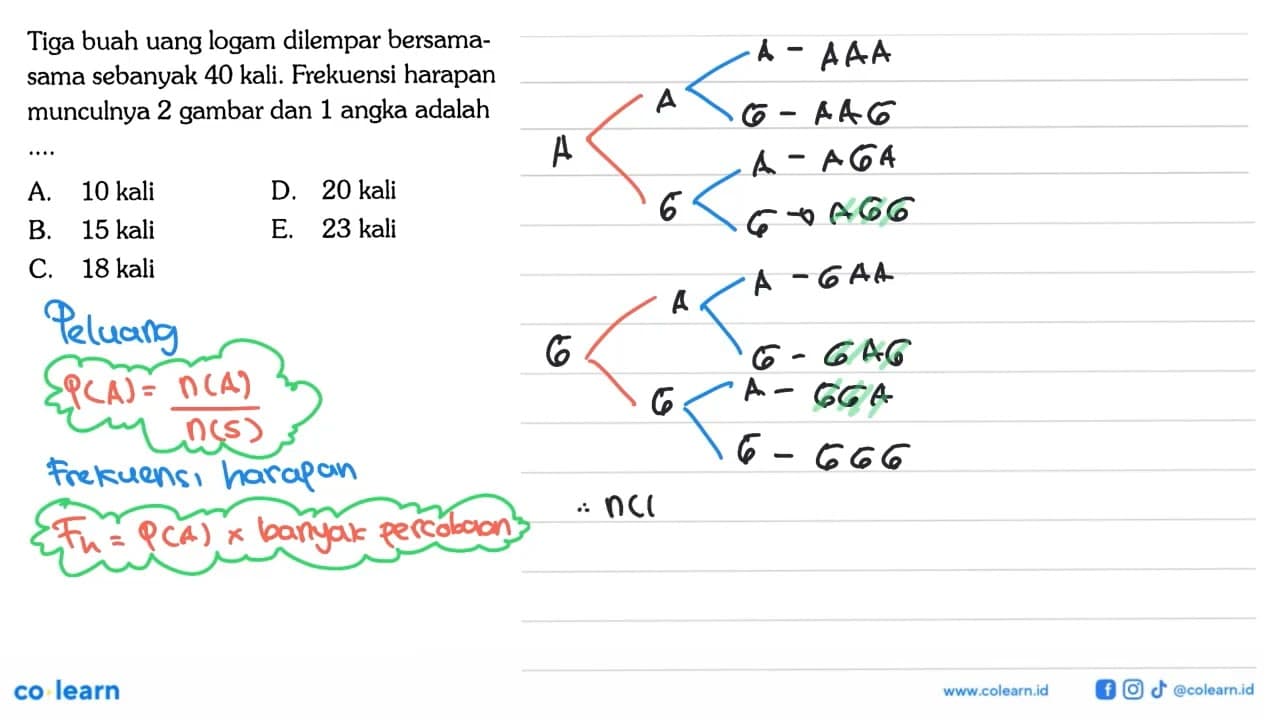 Tiga buah uang logam dilempar bersama-
sama sebanyak 40 kali. Frekuensi harapan
munculnya 2 gambar dan 1 angka adalah
....
A. 10 kali D. 20 kali
B. 15 kali E. 23 kali
C. 18 kali
Peluang
P(A) = n(A)
n(S)
Frekuensi harapan
Fh = P(A) × banyak percobaan
A - AAA
A
G - AAG
A
A - AGA
G
G → AGG
A - GAA
A
G
G - GAG
A - GGA
G
G - GGG
∴ n(
co·learn
www.colearn.id
@colearn.id